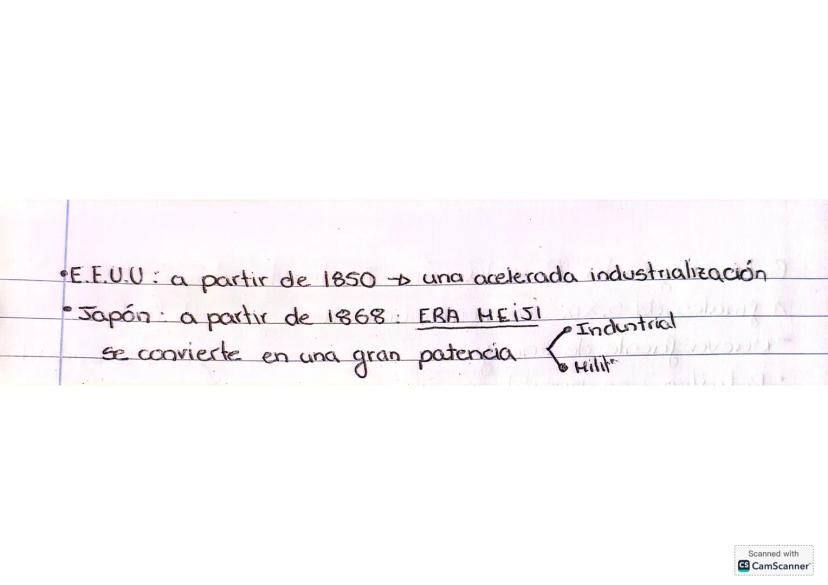 • E.E.U.U : a partir de 1850 → una acelerada industrialización
• Japón : a partir de 1868 : ERA MEIJI
se convierte en una gran potencia
• Industrial
•
Scanned with
CS CamScanner